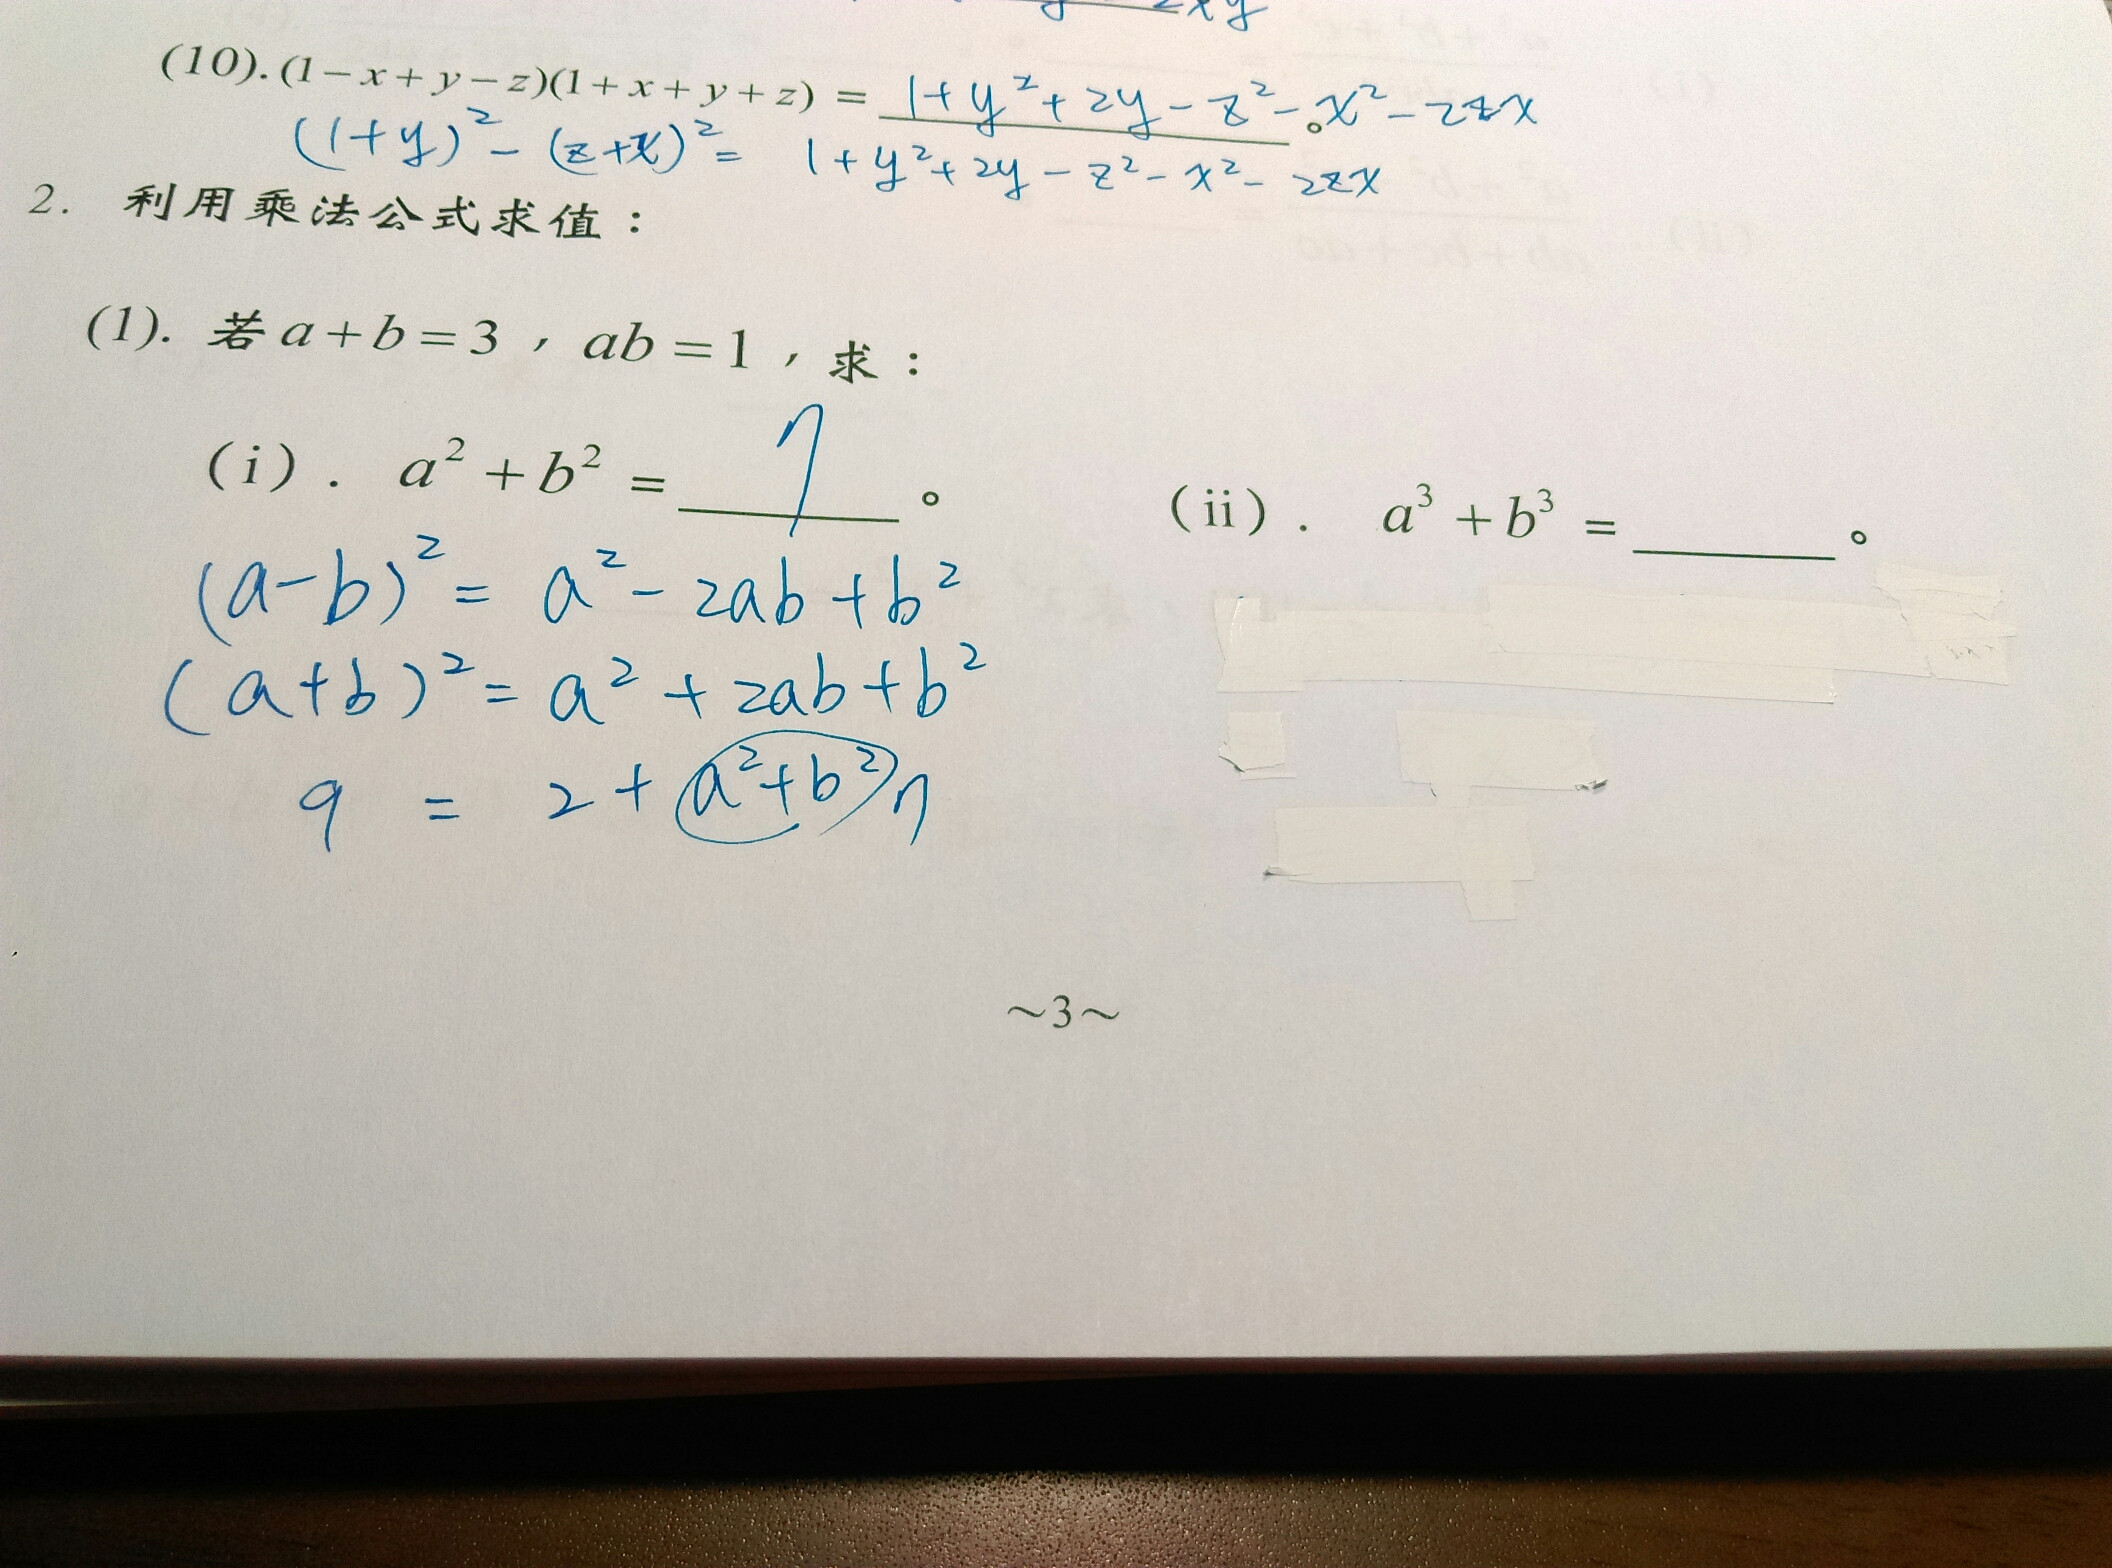 2xy
(10). (1-x+y-z)(1+x+y+z) = 1+y²+2y-z²-x²-2zx。
(1+y)²-(z+x)²= 1+y²+2y-z²-x²-2zx
2. 利用乘法公式求值：
(1). 若a+b=3，ab=1，求：
(i). a²+b²= 7。
(ii). a³+b³=______。
(a-b)²= a²-2ab+b²
(a+b)²= a²+2ab+b²
9 = 2+a²+b² 7
~3~